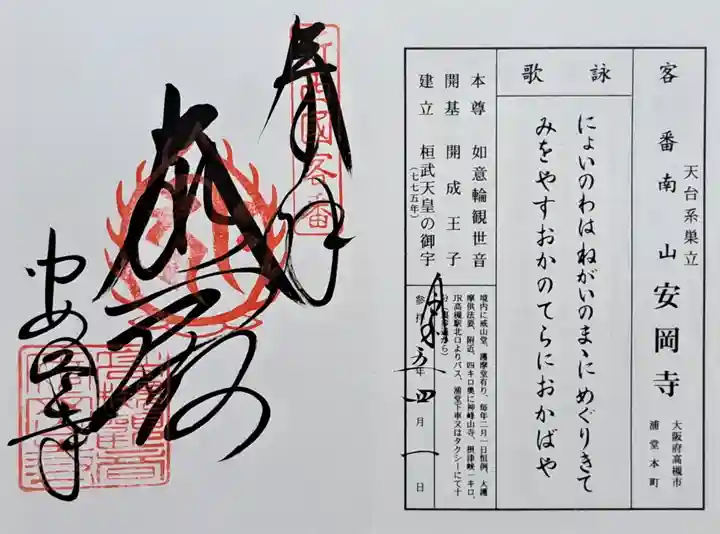 客番南山安岡寺
天台系巣立
大阪府高槻市
浦堂本町
詠歌
にょいのわはねがいのまゝにめぐりきて
みをやすおかのてらにおかばや
本尊 如意輪観世音
開基 開成王子
建立 桓武天皇の御宇
(七七五年)
境内に戒山堂、護摩堂有り、毎年二月一日恒例、大護
摩供法要、附近、四キロ奥に神峰山寺、摂津峡一キロ、
JR高槻駅北口よりバス、浦堂下車又はタクシーにて十
参拝
年四月一日
新西國客番
奉拝
安岡寺